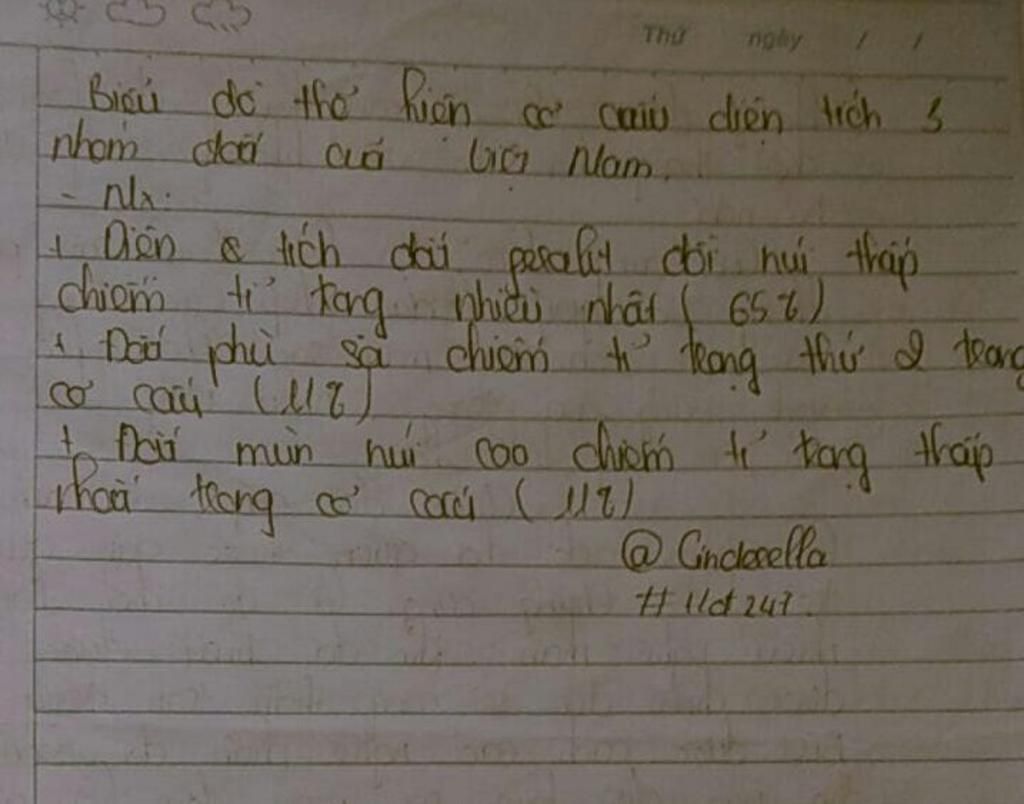 Thứ ngày / /
Biểu đồ thể hiện cơ cấu diện tích 3
nhóm đất của Việt Nam.
- Nx:
+ Diện tích đất feralit đồi núi thấp
chiếm tỉ trọng nhiều nhất (65%)
+ Đất phù sa chiếm tỉ trọng thứ 2 trong
cơ cấu (11%)
+ Đất mùn núi cao chiếm tỉ trọng thấp
nhất trong cơ cấu (11%)
@ Cinderella
# 247.